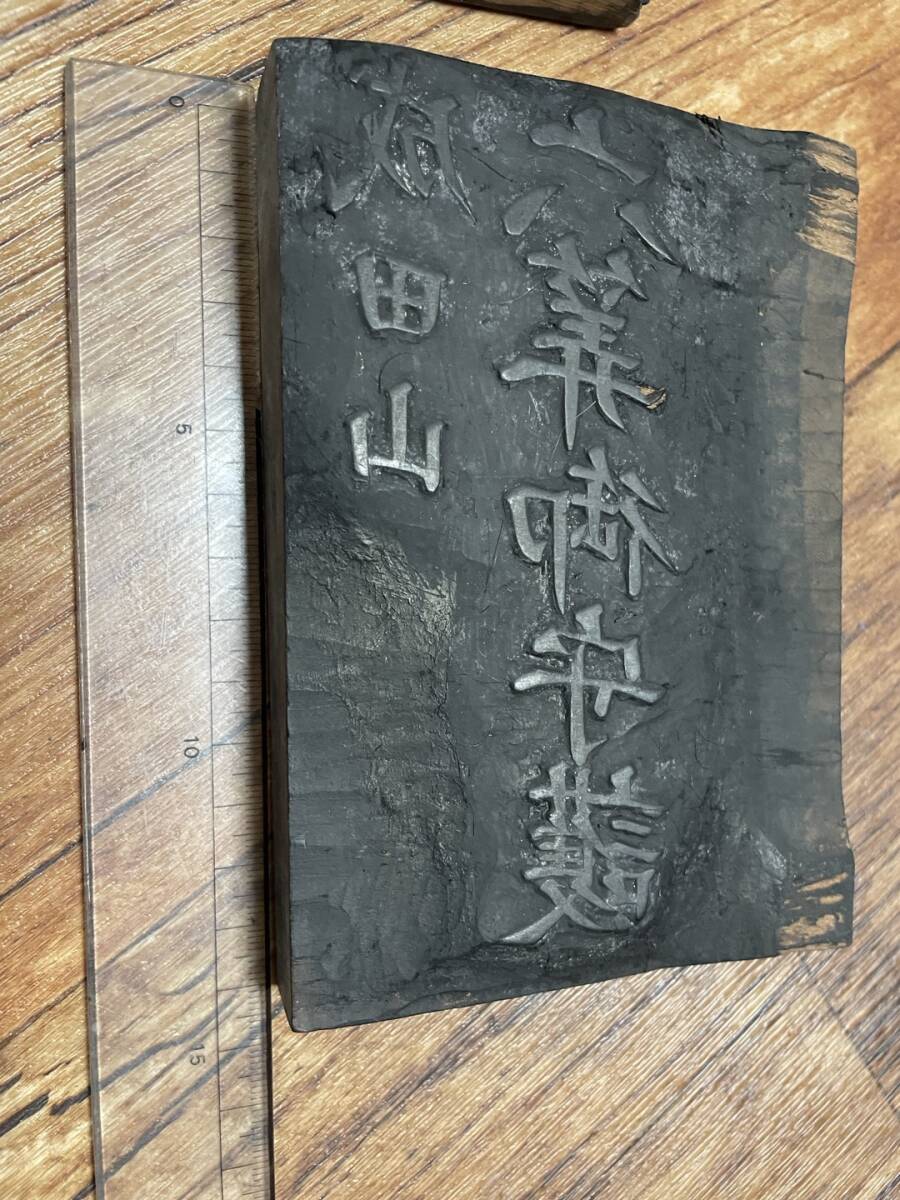 成田山
六筭御守護
0
5
10
15